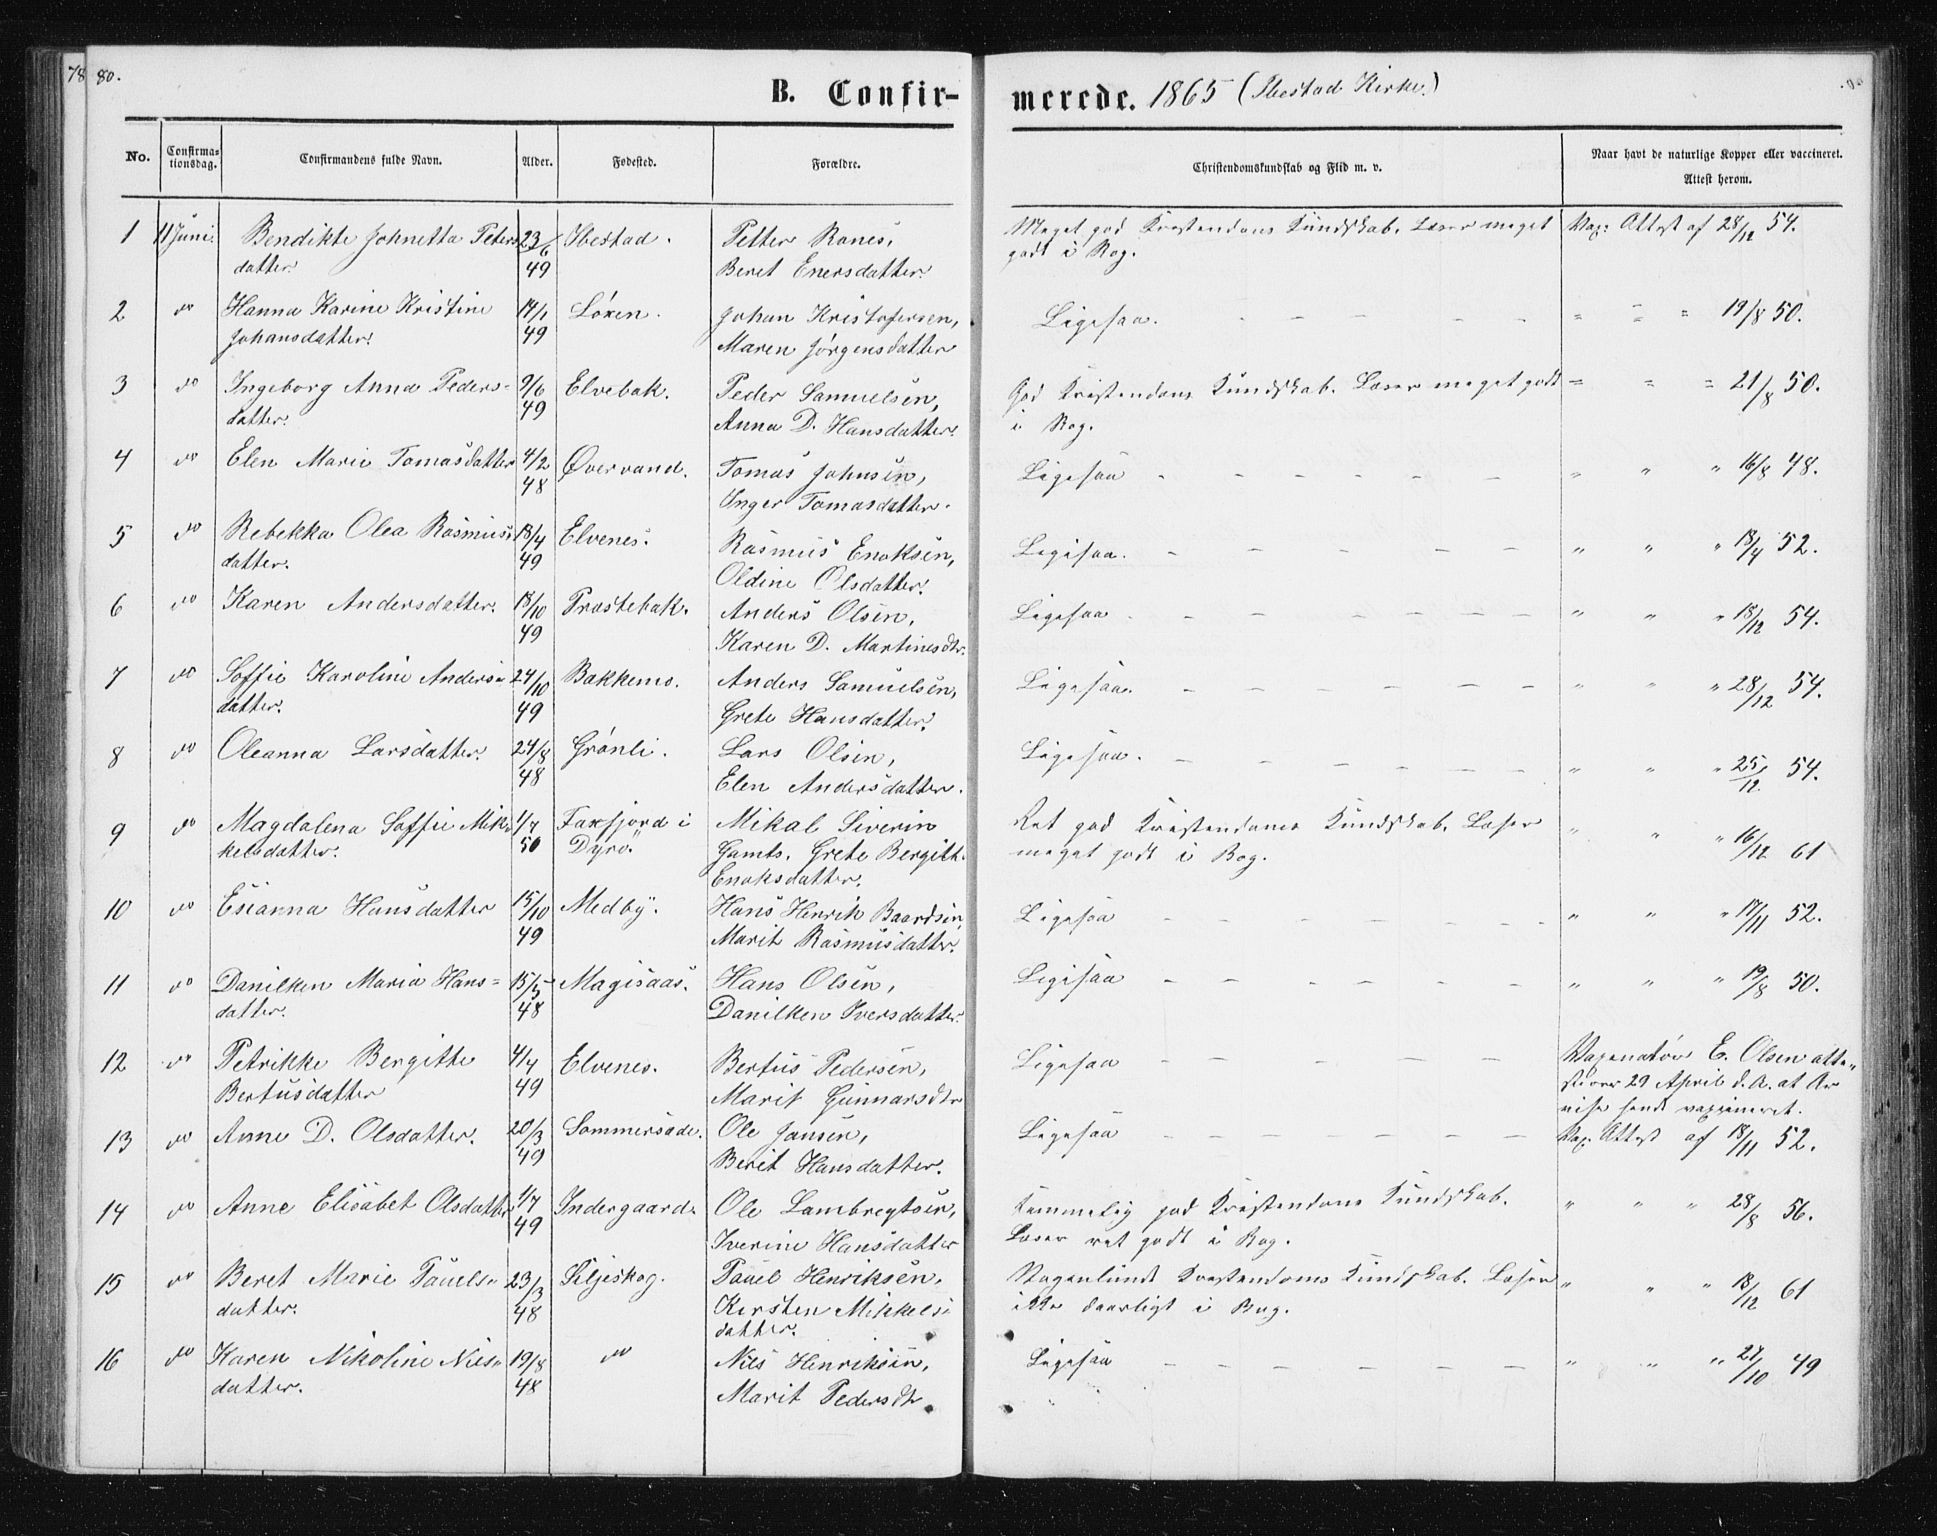 78 80.
B. Confirmerede. 1865 (Ibestad Kirke.)
No. | Confirmationsdag. | Confirmandens fulde Navn. | Alder. | Fødested. | Forældre. | Christendomskundskab og Flid m. v. | Naar havt de naturlige Kopper eller vaccineret. Attest herom.
1 | 11 Juni. | Bendikte Johnetta Petersdatter. | 23/6 49 | Ibestad. | Petter Ranes, Beret Enersdatter. | Meget god Kristendoms Kundskab. Læser meget godt i Bog. | Vax: Attest af 28/12 54.
2 | do | Hanna Karine Kristine Johansdatter. | 14/1 49 | Løxen. | Johan Kristofersen, Maren Jørgensdatter | Ligesaa. | " " " 19/8 50.
3 | do | Ingeborg Anna Pedersdatter. | 9/6 49 | Elvebak. | Peder Samuelsen, Anna D. Hansdatter. | God Kristendoms Kundskab. Læser meget godt i Bog. | " " " 21/8 50.
4 | do | Elen Marie Tomasdatter | 4/2 48 | Øvervand. | Tomas Johnsen, Inger Tomasdatter. | Ligesaa | " " " 16/8 48.
5 | do | Rebekka Olea Rasmusdatter. | 18/4 49 | Elvenes. | Rasmus Enoksen, Oldine Olsdatter. | Ligesaa. | " " " 18/4 52.
6 | do | Karen Andersdatter. | 18/10 49 | Prastebak. | Anders Olsen, Karen D. Martinesdtr. | Ligesaa | " " " 18/12 54.
7 | do | Soffie Karoline Andersdatter. | 24/10 49 | Bakkemo. | Anders Samuelsen, Grete Hansdatter. | Ligesaa. | " " " 28/12 54.
8 | do | Oleanna Larsdatter. | 24/8 48 | Grønli. | Lars Olsen, Elen Andersdatter. | Ligesaa. | " " " 25/12 54.
9 | do | Magdalena Soffie Mikkelsdatter. | 1/7 50 | Faxfjord i Dyrø. | Mikal Siverin Gamts. Grete Bergith. Enoksdatter. | Ret god Kristendoms Kundskab. Læser meget godt i Bog. | " " " 16/12 61
10 | do | Esianna Hansdatter | 15/10 49 | Medby. | Hans Henrik Baardsen, Marit Rasmusdatter. | Ligesaa | " " " 17/11 52.
11 | do | Danilken Maria Hansdatter. | 15/5 48 | Magisaas. | Hans Olsen, Danilken Iversdatter. | Ligesaa | " " " 19/8 50.
12 | do | Petrikke Bergitte Bertusdatter | 4/7 49 | Elvenes. | Bertus Pedersen, Marit Gunnarsdtr | Ligesaa | Vaxinatør E. Olsen attesterer 29 April d. A. at være vaxineret.
13 | do | Anne D. Olsdatter. | 20/3 49 | Sommersæde. | Ole Jansen, Berit Hansdatter. | Ligesaa | Vax. Attest af 18/11 52.
14 | do | Anne Elisabet Olsdatter | 1/7 49 | Indergaard. | Ole Lambregtsen, Iverine Hansdatter | Temmelig god Kristendoms Kundskab. Læser ret godt i Bog. | " " " 28/8 56.
15 | do | Beret Marie Pauelsdatter. | 23/3 48 | Siljeskog. | Pauel Henriksen, Kirsten Mikkelsdatter. | Nogenlunde Kristendoms Kundskab. Læser ikke daarligt i Bog. | " " " 18/12 61
16 | do | Karen Nikoline Nilsdatter. | 19/8 48 | do | Nils Henriksen, Marit Pedersdtr | Ligesaa | " " " 27/10 49